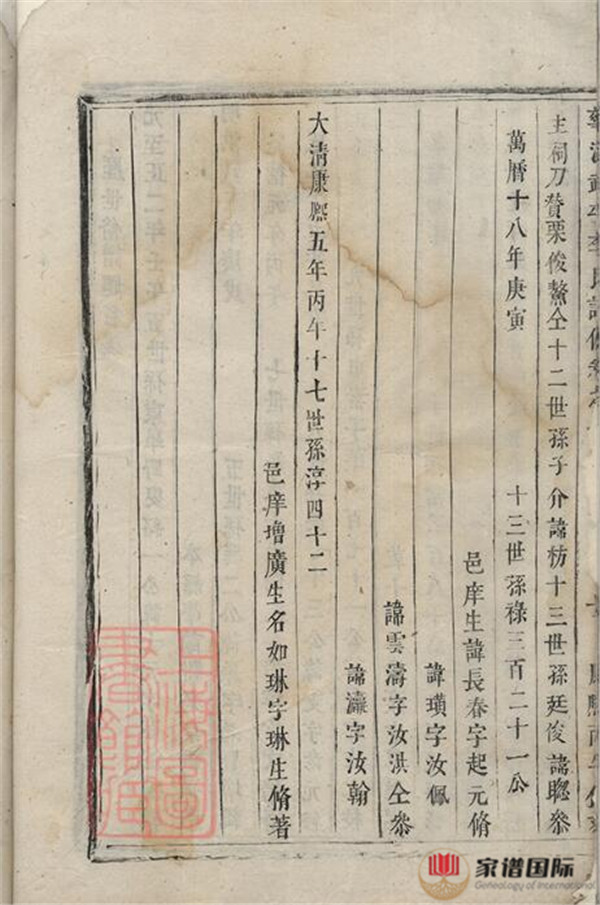 主祠刀贊栗俊鰲仝十二世孫子介諱枋十三世孫廷俊諱聰叅
萬曆十八年庚寅 十三世孫祿三百二十一公
邑庠生諱長春字起元脩
諱璜字汝佩
諱雲濤字汝洪仝叅
諱瀛字汝翰
大清康熈五年丙午十七世孫淳四十二
邑庠增廣生名如琳字琳生脩著
家谱国际
Genealogy of International